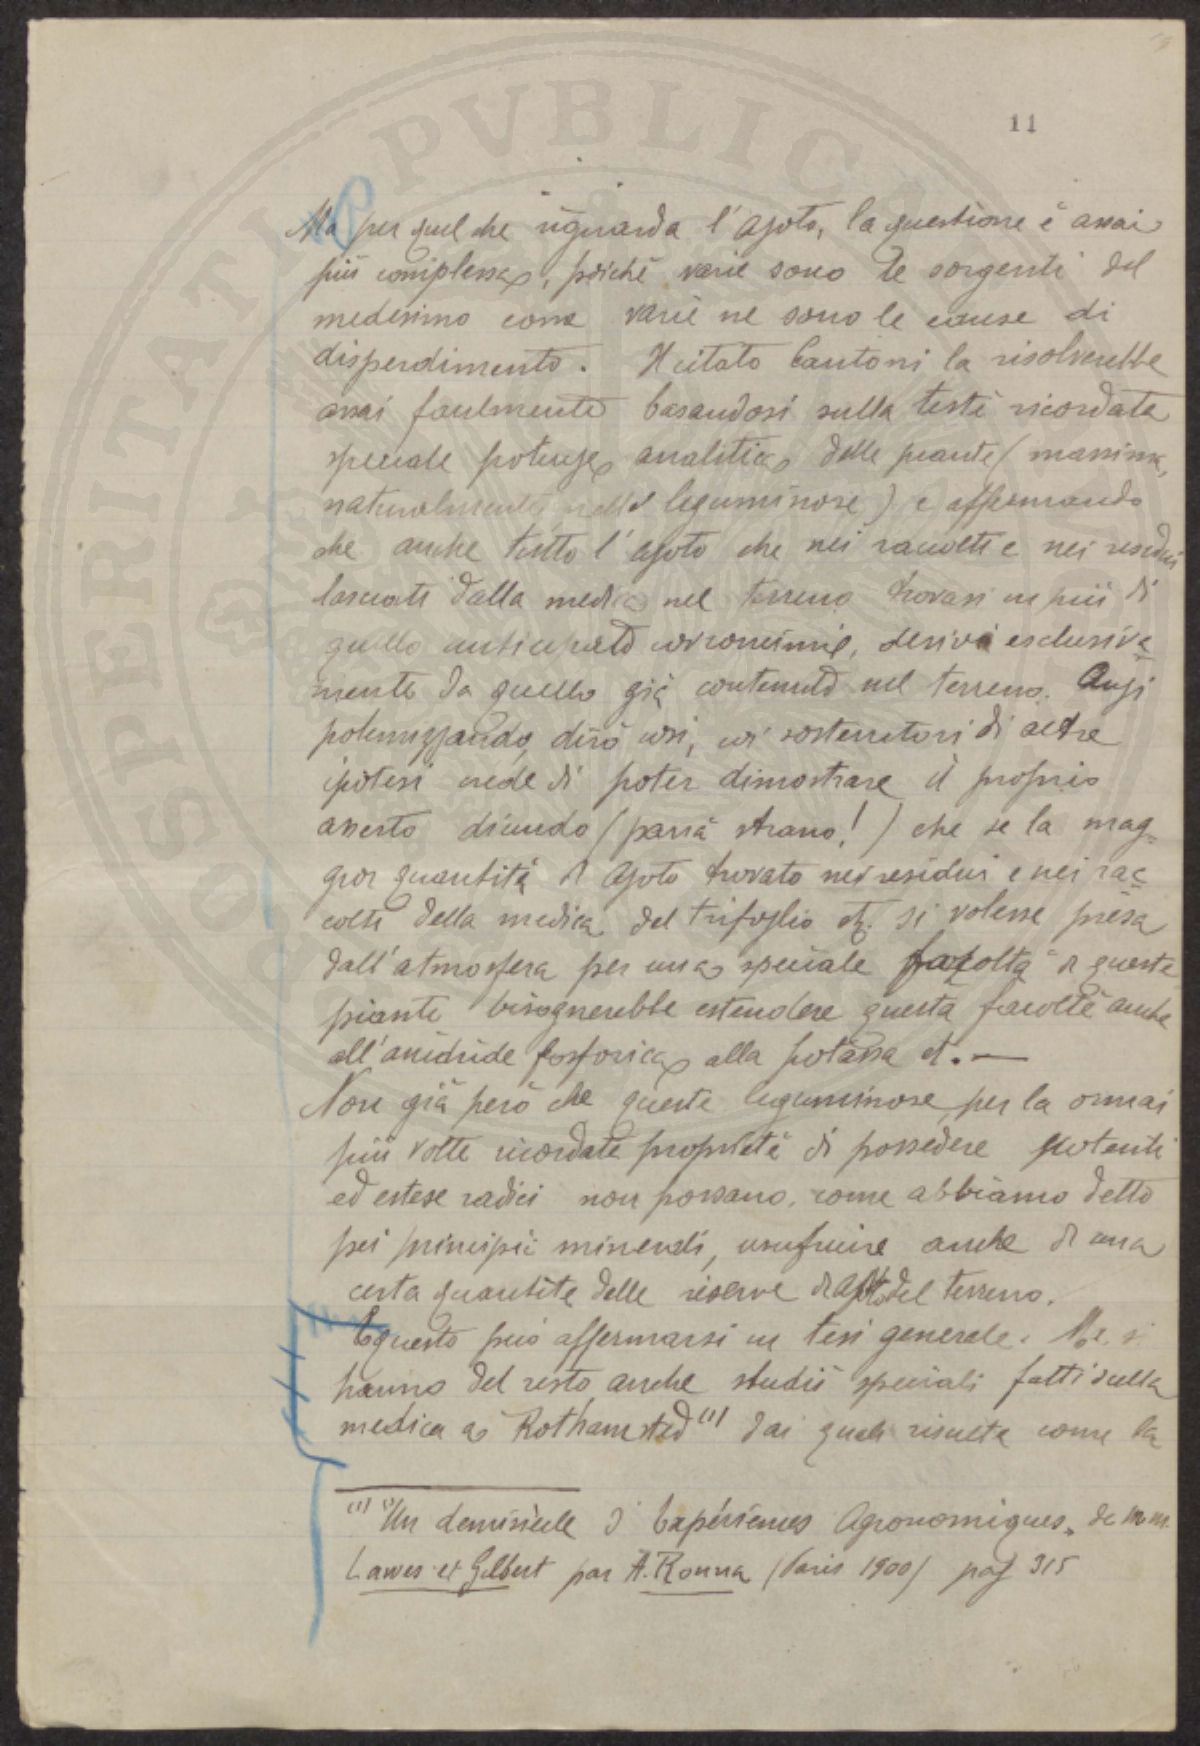 11
Ma per quel che riguarda l'azoto, la questione è assai
più complessa, poichè varie sono le sorgenti del
medesimo come varie ne sono le cause di
disperdimento. Il citato Cantoni la risolverebbe
assai facilmente basandosi sulla testè ricordata
speciale potenza analitica delle piante (massima,
naturalmente, nelle leguminose) e affermando
che anche tutto l'azoto che nei raccolti e nei residui
lasciati dalla medica nel terreno trovasi in più di
quello anticipato coi concimi, deriva esclusiva=
mente da quello già contenuto nel terreno. Anzi
polemizzando, dirò così, coi sostenitori di altre
ipotesi crede di poter dimostrare il proprio
asserto dicendo (parrà strano!) che se la mag=
gior quantità di azoto trovato nei residui e nei rac=
colti della medica, del trifoglio etc. si volesse presa
dall'atmosfera per una speciale facoltà di queste
piante bisognerebbe estendere questa facoltà anche
all'anidride fosforica, alla potassa et. —
Non già però che queste leguminose, per la ormai
più volte ricordata proprietà di possedere potenti
ed estese radici non possano, come abbiamo detto
pei principii minerali, usufruire anche di una
certa quantità delle riserve di azoto del terreno.
E questo può affermarsi in tesi generale. Ne si
hanno del resto anche studii speciali fatti sulla
medica a Rothamsted (1) dai quali risulta come la
(1) "Un demisiècle d'Expériences Agronomiques" de M.M.
Lawes et Gilbert par A. Ronna (Paris 1900) pag 315
SOSPERITATI PVBLICAE